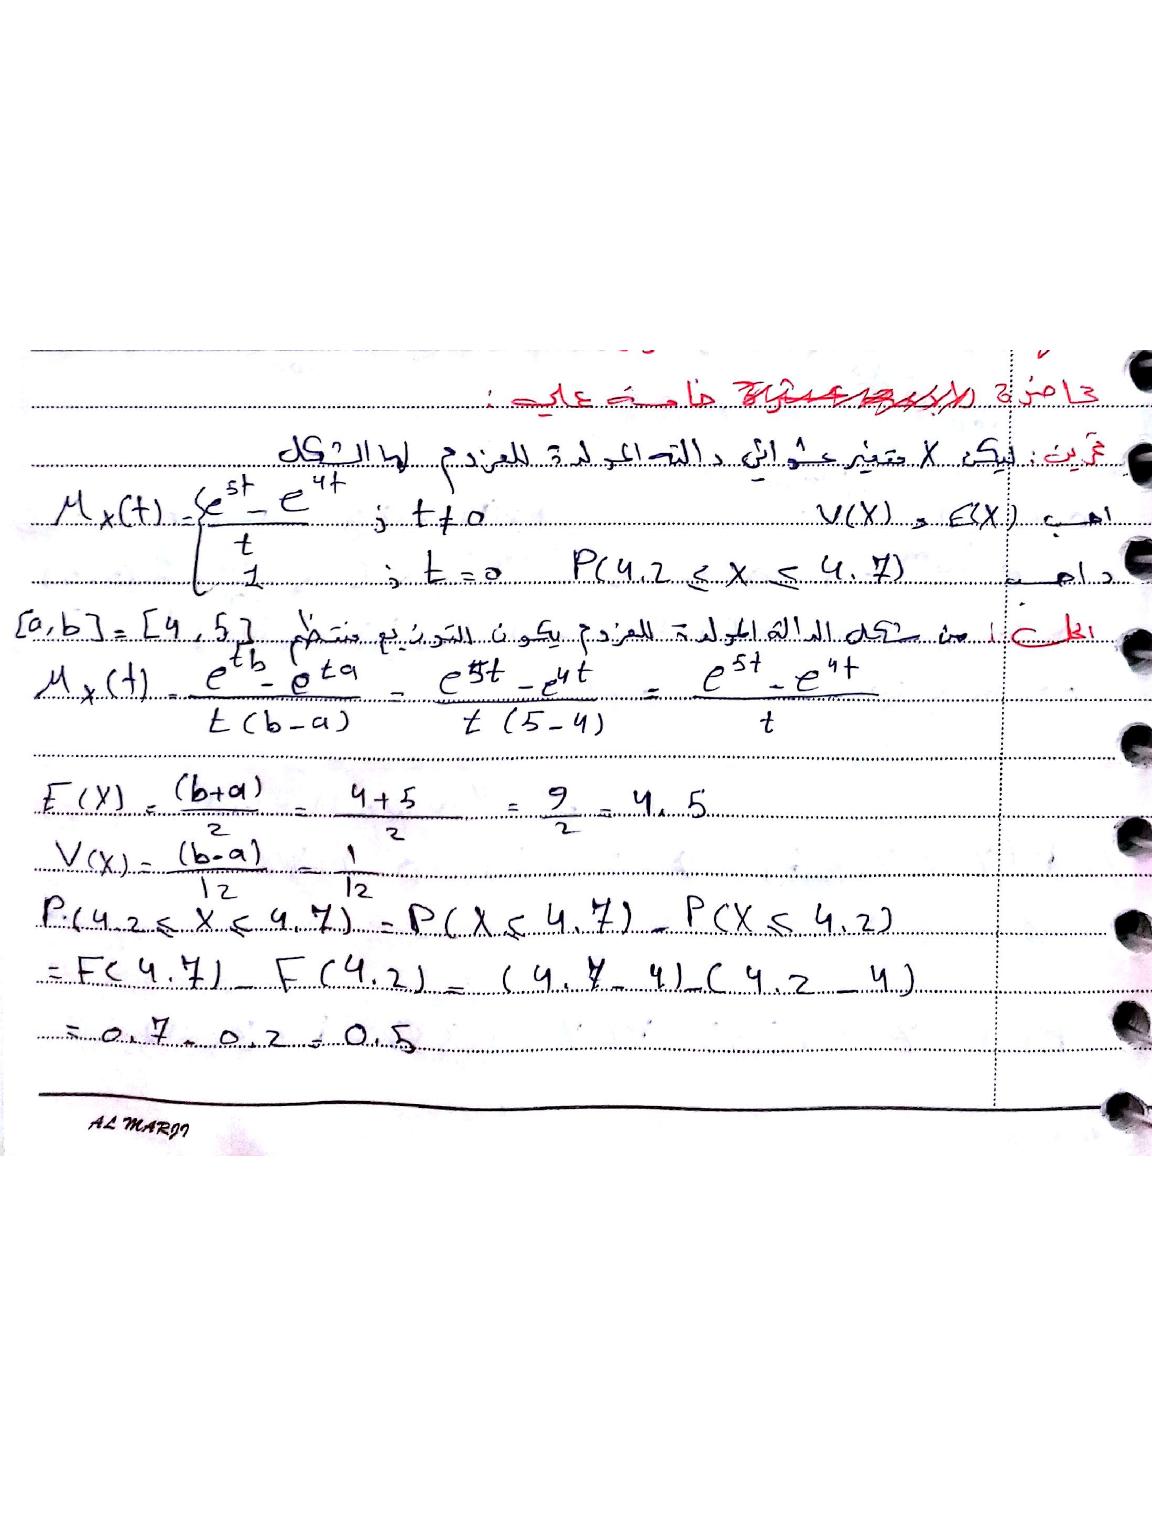 محاضرة خامسة عملي :
تمرين : ليكن X متغير عشوائي دالته المولدة للعزوم لها الشكل
M_X(t) = { (e^{5t} - e^{4t}) / t ; t ≠ 0 احسب E(X) و V(X)
1 ; t = 0 P(4.2 ≤ X ≤ 4.7) واحسب
الحل : من شكل الدالة المولدة للعزوم يكون التوزيع منتظم [a,b] = [4,5]
M_X(t) = (e^{tb} - e^{ta}) / t(b-a) = (e^{5t} - e^{4t}) / t(5-4) = (e^{5t} - e^{4t}) / t
E(X) = (b+a)/2 = 4+5/2 = 9/2 = 4.5
V(X) = (b-a)/12 = 1/12
P(4.2 ≤ X ≤ 4.7) = P(X ≤ 4.7) - P(X ≤ 4.2)
= F(4.7) - F(4.2) = (4.7 - 4) - (4.2 - 4)
= 0.7 - 0.2 = 0.5
AL MARJI